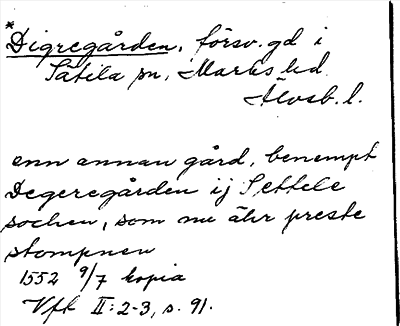 *
Digregården, försv. gd i
Sätila sn, Marks hd
Älvsb. l.
enn annan gård, benempt
Degeregården ij Settele
sochen, som nu ähr preste
stompnen
1552 9/7 kopia
Vft II:2-3, s. 91.